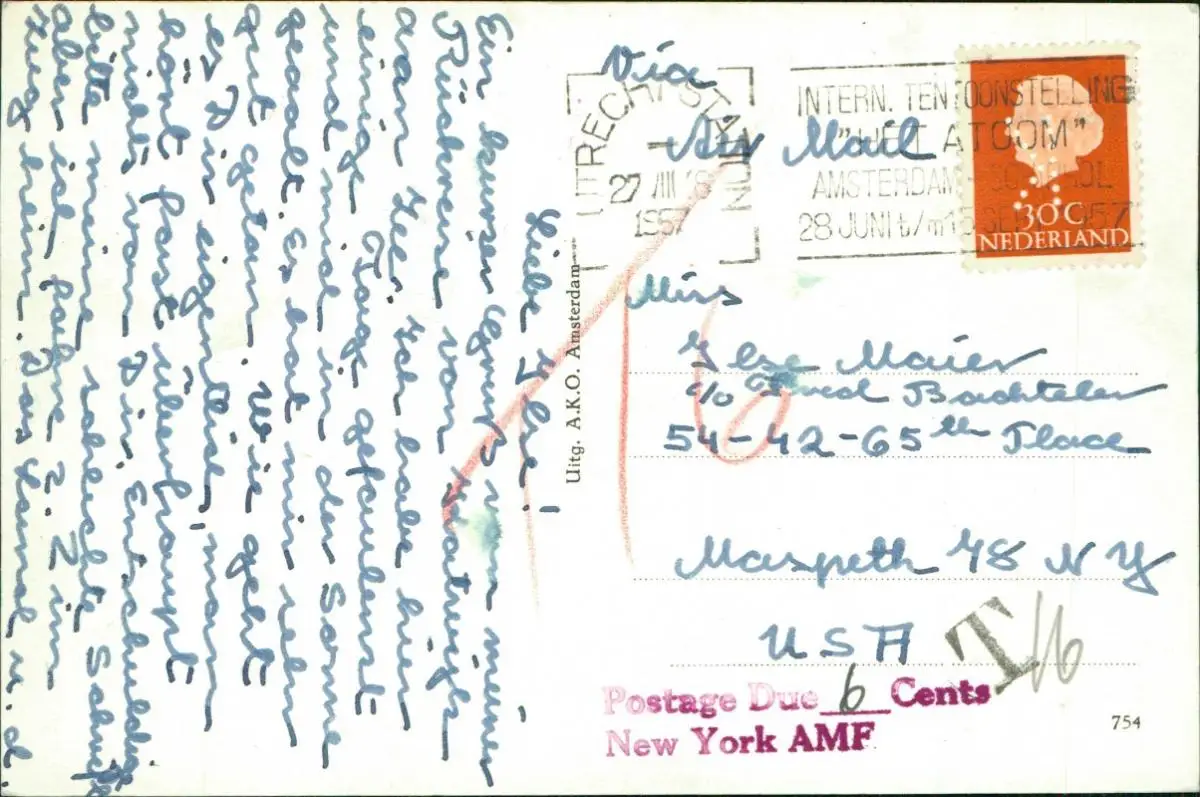 Liebe Ilse!
Ein kurzer Gruß von meiner
Rückreise von Katwijk
aan Zee. Ich habe hier
einige Tage gefaulenzt
und mich in der Sonne
geaalt. Es hat mir sehr
gut getan. Wie geht
es Dir eigentlich, man
hört fast überhaupt
nichts von Dir. Entschuldige
bitte meine schlechte Schrift
aber ich fahre z. Z im
Zug heim. Das u. d.
Uitg. A.K.O. Amsterdam
Via
Air Mail
UTRECHT STATION
27 VIII
1957
INTERN. TENTOONSTELLING
"HET ATOOM"
AMSTERDAM - SCHIPHOL
28 JUNI t/m 15 SEPT 1957
30 C
NEDERLAND
Miss
Ilse Maier
c/o Fred Bachteler
54-42-65th Place
Maspeth 78 NY
USA
T 16
16
Postage Due 6 Cents
New York AMF
754